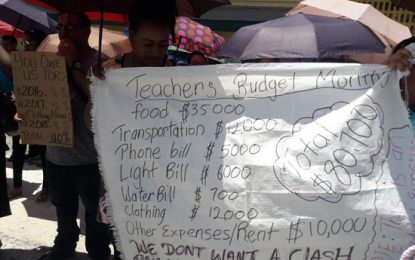 YOU OWE
US FOR:
2016
2017
TOTAL - 40%
Teachers Budget Monthly
food $35000
Transportation $
Phone bill $5000
Light Bill $6000
Water Bill $700
Clothing $12000
Other Expenses/Rent $10,000
WE DONT WANT A CLASH
Total
$80,700